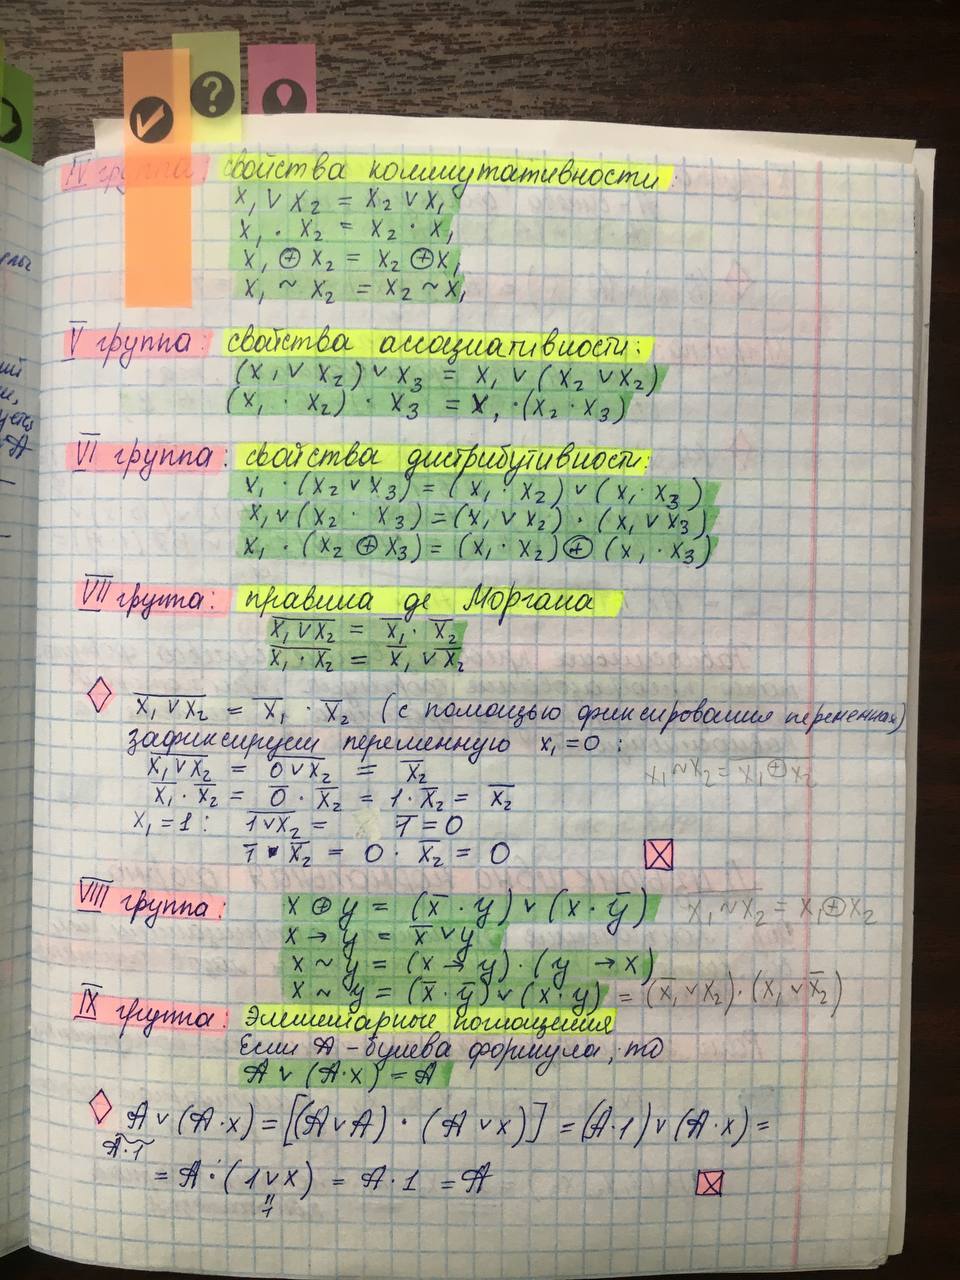 IV группа: свойства коммутативности:
x₁ ∨ x₂ = x₂ ∨ x₁
x₁ · x₂ = x₂ · x₁
x₁ ⊕ x₂ = x₂ ⊕ x₁
x₁ ~ x₂ = x₂ ~ x₁
V группа: свойства ассоциативности:
(x₁ ∨ x₂) ∨ x₃ = x₁ ∨ (x₂ ∨ x₂)
(x₁ · x₂) · x₃ = x₁ · (x₂ · x₃)
VI группа: свойства дистрибутивности:
x₁ · (x₂ ∨ x₃) = (x₁ · x₂) ∨ (x₁ · x₃)
x₁ ∨ (x₂ · x₃) = (x₁ ∨ x₂) · (x₁ ∨ x₃)
x₁ · (x₂ ⊕ x₃) = (x₁ · x₂) ⊕ (x₁ · x₃)
VII группа: правила де Моргана
x̅₁̅ ̅∨̅ ̅x̅₂̅ = x̅₁ · x̅₂
x̅₁̅ ̅·̅ ̅x̅₂̅ = x̅₁ ∨ x̅₂
x̅₁̅ ̅∨̅ ̅x̅₂̅ = x̅₁ · x̅₂ (с помощью фиксирования переменная)
зафиксируем переменную x₁ = 0 :
x̅₁̅ ̅∨̅ ̅x̅₂̅ = 0̅ ̅∨̅ ̅x̅₂̅ = x̅₂
x₁ ~ x₂ = x̅₁̅ ̅⊕̅ ̅x̅₂̅
x̅₁ · x̅₂ = 0̅ · x̅₂ = 1 · x̅₂ = x̅₂
x₁ = 1 : 1̅ ̅∨̅ ̅x̅₂̅ = 1̅ = 0
1̅ · x̅₂ = 0 · x̅₂ = 0
VIII группа: x ⊕ y = (x̅ · y) ∨ (x · y̅) x̅₁ ~ x₂ = x₁ ⊕ x₂
x → y = x̅ ∨ y
x ~ y = (x → y) · (y → x)
x ~ y = (x̅ · y̅) ∨ (x · y) = (x̅₁ ∨ x₂) · (x₁ ∨ x̅₂)
IX группа: Элементарные поглощения
Если A - булева формула, то
A ∨ (A · x) = A
A ∨ (A · x) = [(A ∨ A) · (A ∨ x)] = (A · 1) ∨ (A · x) =
A · 1
= A · (1 ∨ x) = A · 1 = A
"
1